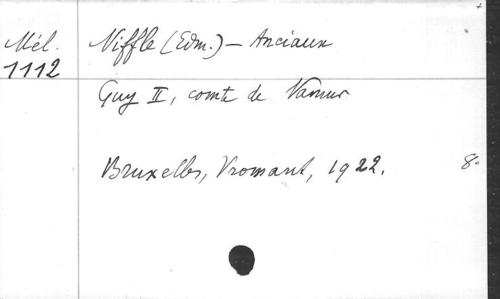 Mél.
1112
Niffle (Edm.) – Anciaux
Guy II, comte de Namur
Bruxelles, Vromant, 1922.
8°